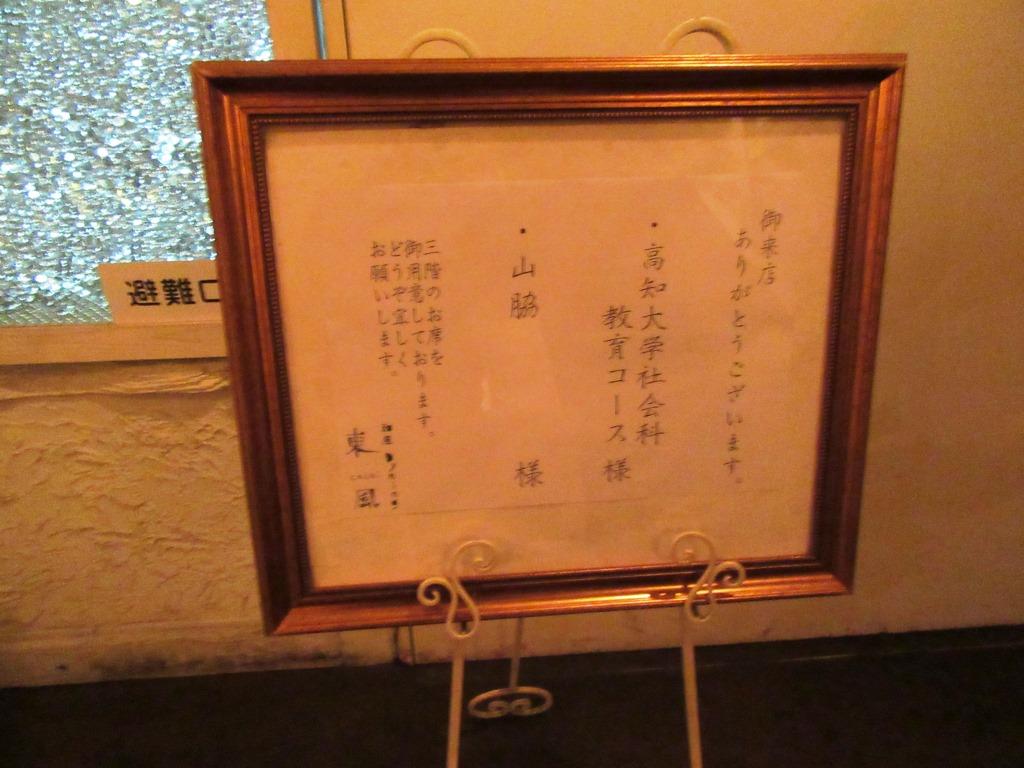 御来店
ありがとうございます。
・高知大学社会科
教育コース 様
・山脇 様
三階のお席を
御用意しております。
どうぞ宜しく
お願いします。
東風
避難口